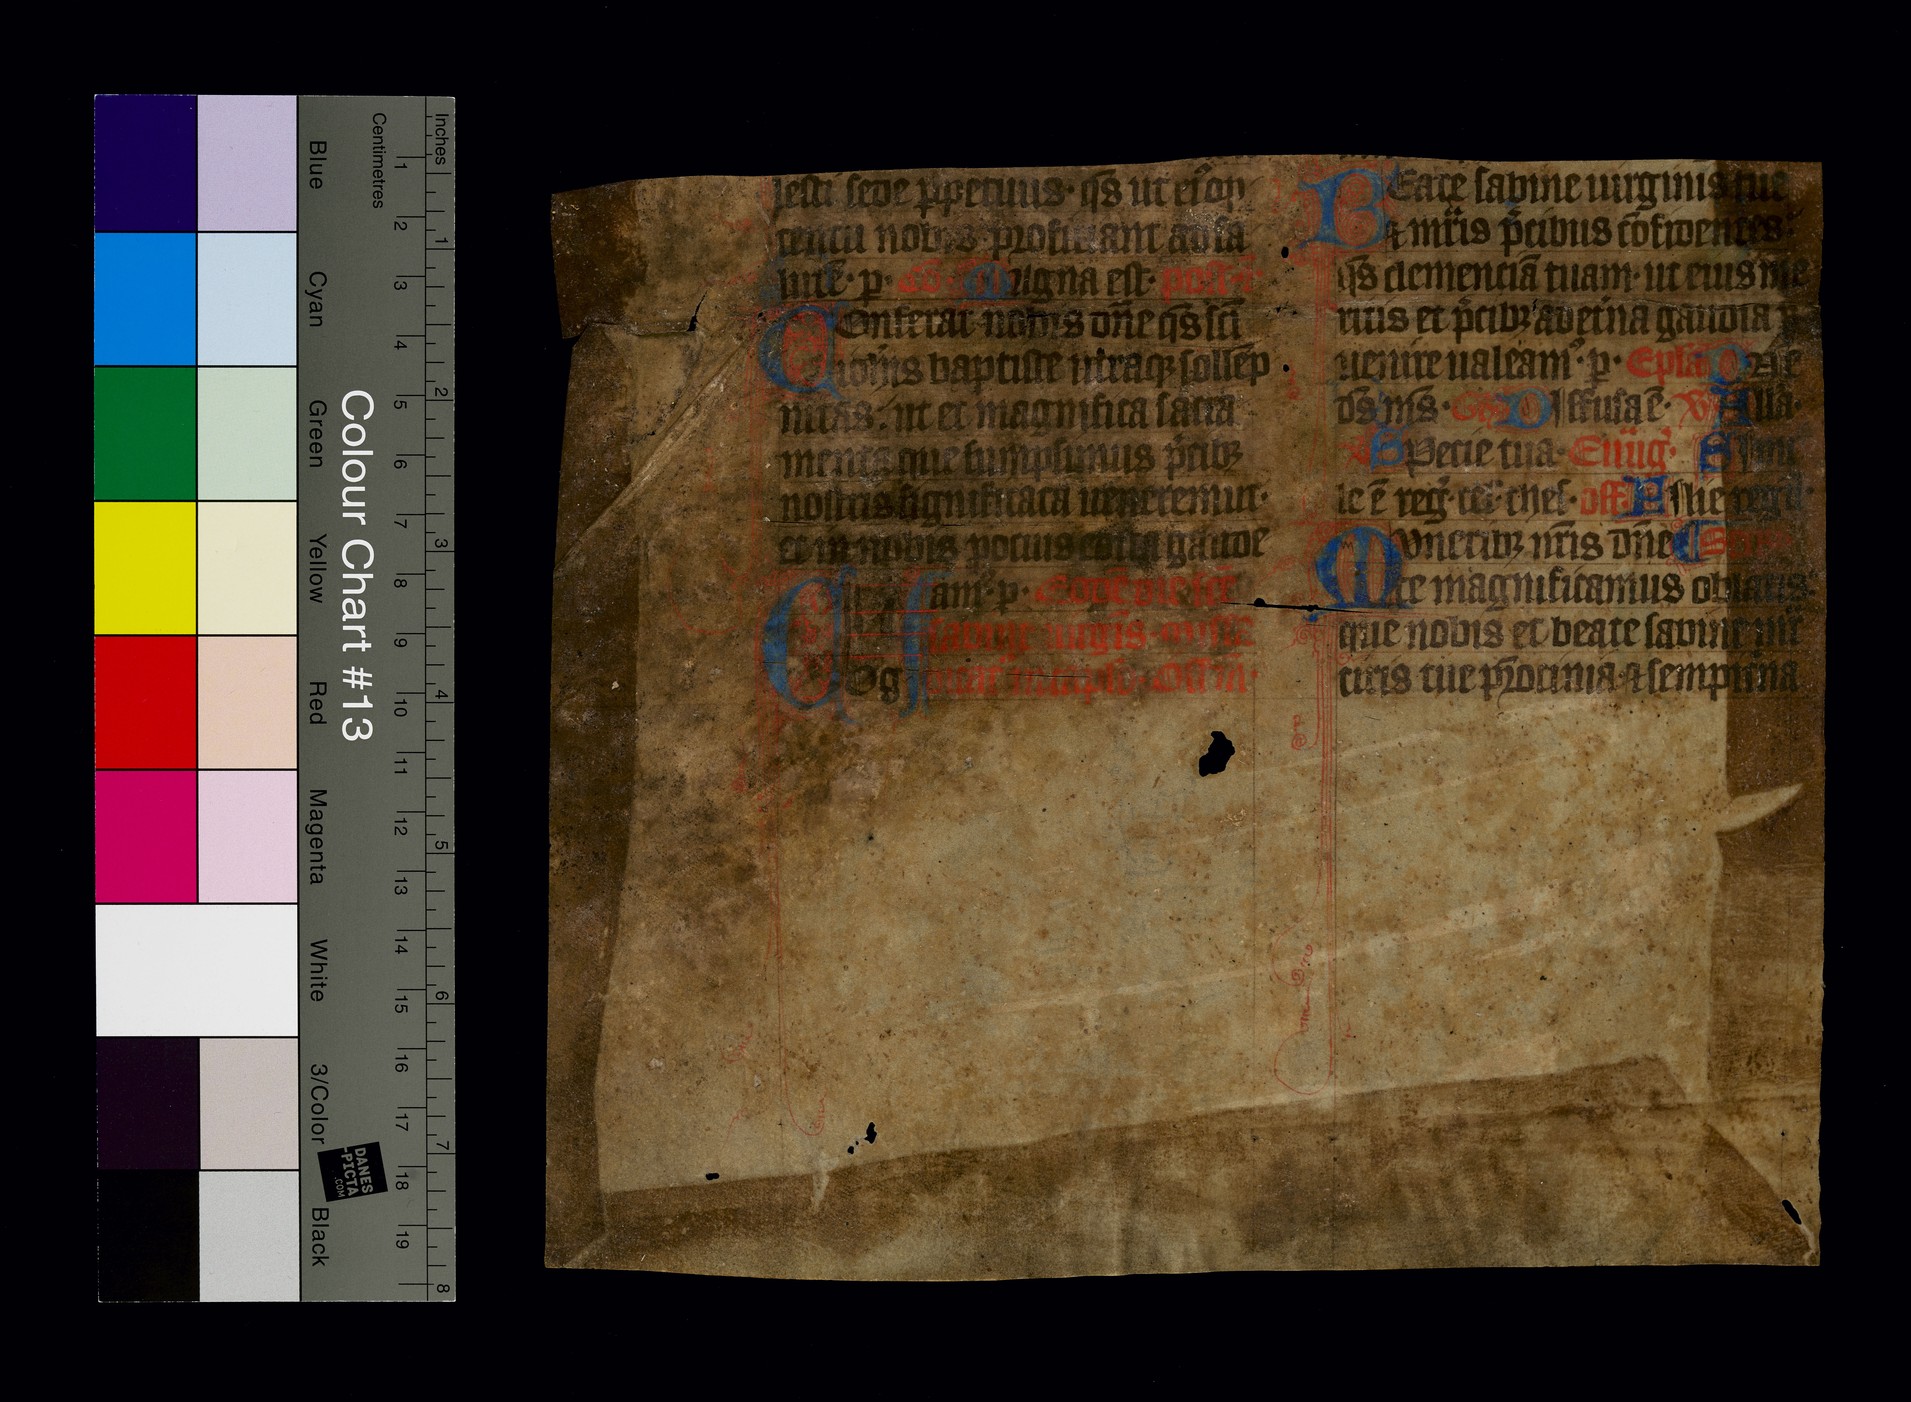 Inches
Centimetres
1 2 3 4 5 6 7 8 9 10 11 12 13 14 15 16 17 18 19
1 2 3 4 5 6 7 8
Blue
Cyan
Green
Yellow
Red
Magenta
White
3/Color
Black
Colour Chart #13
DANES
-PICTA
.COM
lesti sede ꝑpetuus· q̄s ut
nobis proficiant ad sa
lutē· p̲· Co· Magna est· post c̄
Conferat nobis dn̄e q̄s sc̄i
ioh̄is baptiste utraqꝫ sollep
nitas· ut et magnifica sacra
menta que sumpsimus
nostris significata ueneremur·
et in nobis potius edita gaude
am᷒· p̲· Eodē die sc̄e
sabine uirgīs·
Beate sabine uirginis tue
⁊ mr̄is p̄cibus cōfidentes·
q̄s clemenciā tuam· ut eius me
ritis et p̄cibꝫ ad et̄na gaudia
uenire ualeam᷒· p̲· Ep̄la Dn̄e
ds̄ ms̄· Diffusa ē· V̄ Alla·
Specie tua· Simi
le ē reg· cel· thes· off Filie reg·
Muneribꝫ nr̄is dn̄e
te magnificamus oblatis·
que nobis et beate sabine
tiris tue p̄rocinia ⁊ sempit̄na